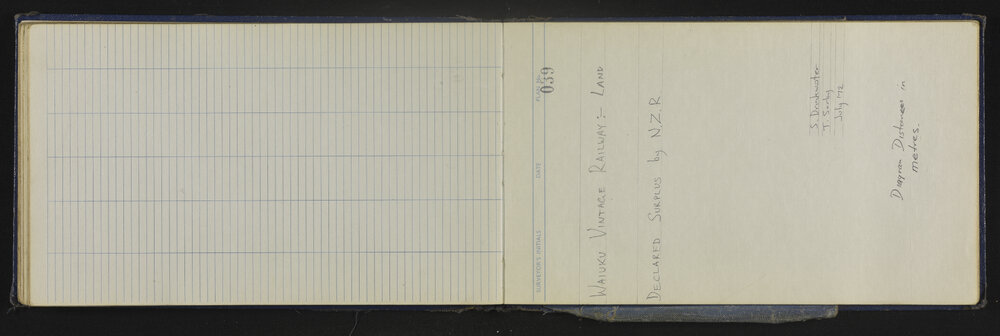 SURVEYOR'S INITIALS DATE PLAN No.
039
WAIUKU VINTAGE RAILWAY :- LAND
DECLARED SURPLUS by N.Z.R.
S. Drinkwater
July '72
Diagram Distances in
metres.